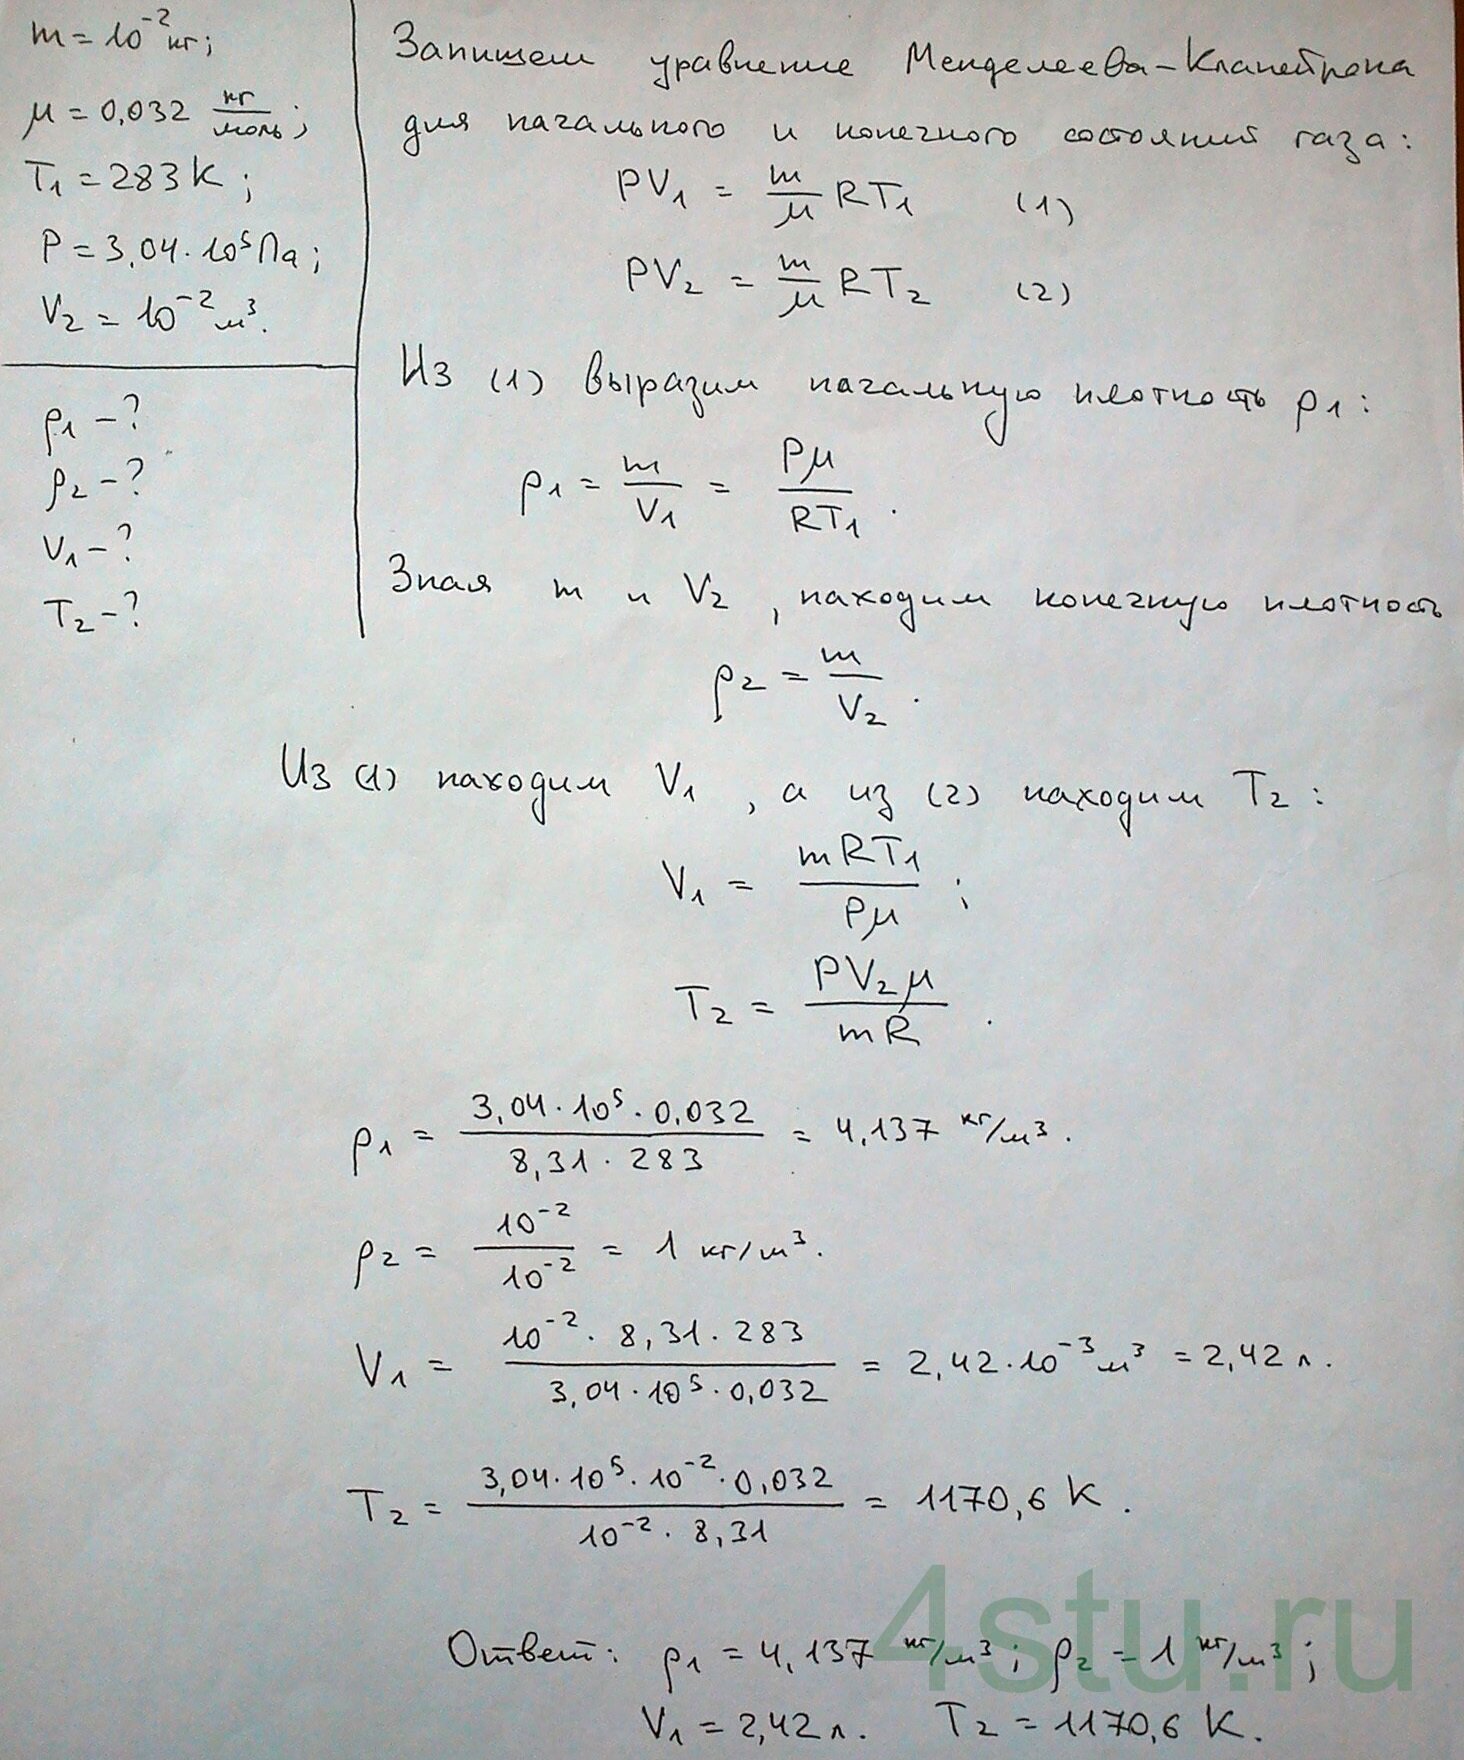 m = 10⁻² кг;
μ = 0,032 кг/моль;
T₁ = 283 К;
P = 3,04·10⁵ Па;
V₂ = 10⁻² м³.
ρ₁ – ?
ρ₂ – ?
V₁ – ?
T₂ – ?
Запишем уравнение Менделеева-Клапейрона
для начального и конечного состояний газа:
PV₁ = m/μ RT₁ (1)
PV₂ = m/μ RT₂ (2)
Из (1) выразим начальную плотность ρ₁:
ρ₁ = m/V₁ = Pμ/RT₁.
Зная m и V₂, находим конечную плотность
ρ₂ = m/V₂.
Из (1) находим V₁, а из (2) находим T₂:
V₁ = mRT₁/Pμ;
T₂ = PV₂μ/mR.
ρ₁ = 3,04·10⁵·0,032/8,31·283 = 4,137 кг/м³.
ρ₂ = 10⁻²/10⁻² = 1 кг/м³.
V₁ = 10⁻²·8,31·283/3,04·10⁵·0,032 = 2,42·10⁻³ м³ = 2,42 л.
T₂ = 3,04·10⁵·10⁻²·0,032/10⁻²·8,31 = 1170,6 К.
Ответ: ρ₁ = 4,137 кг/м³; ρ₂ = 1 кг/м³;
V₁ = 2,42 л. T₂ = 1170,6 К.
4stu.ru